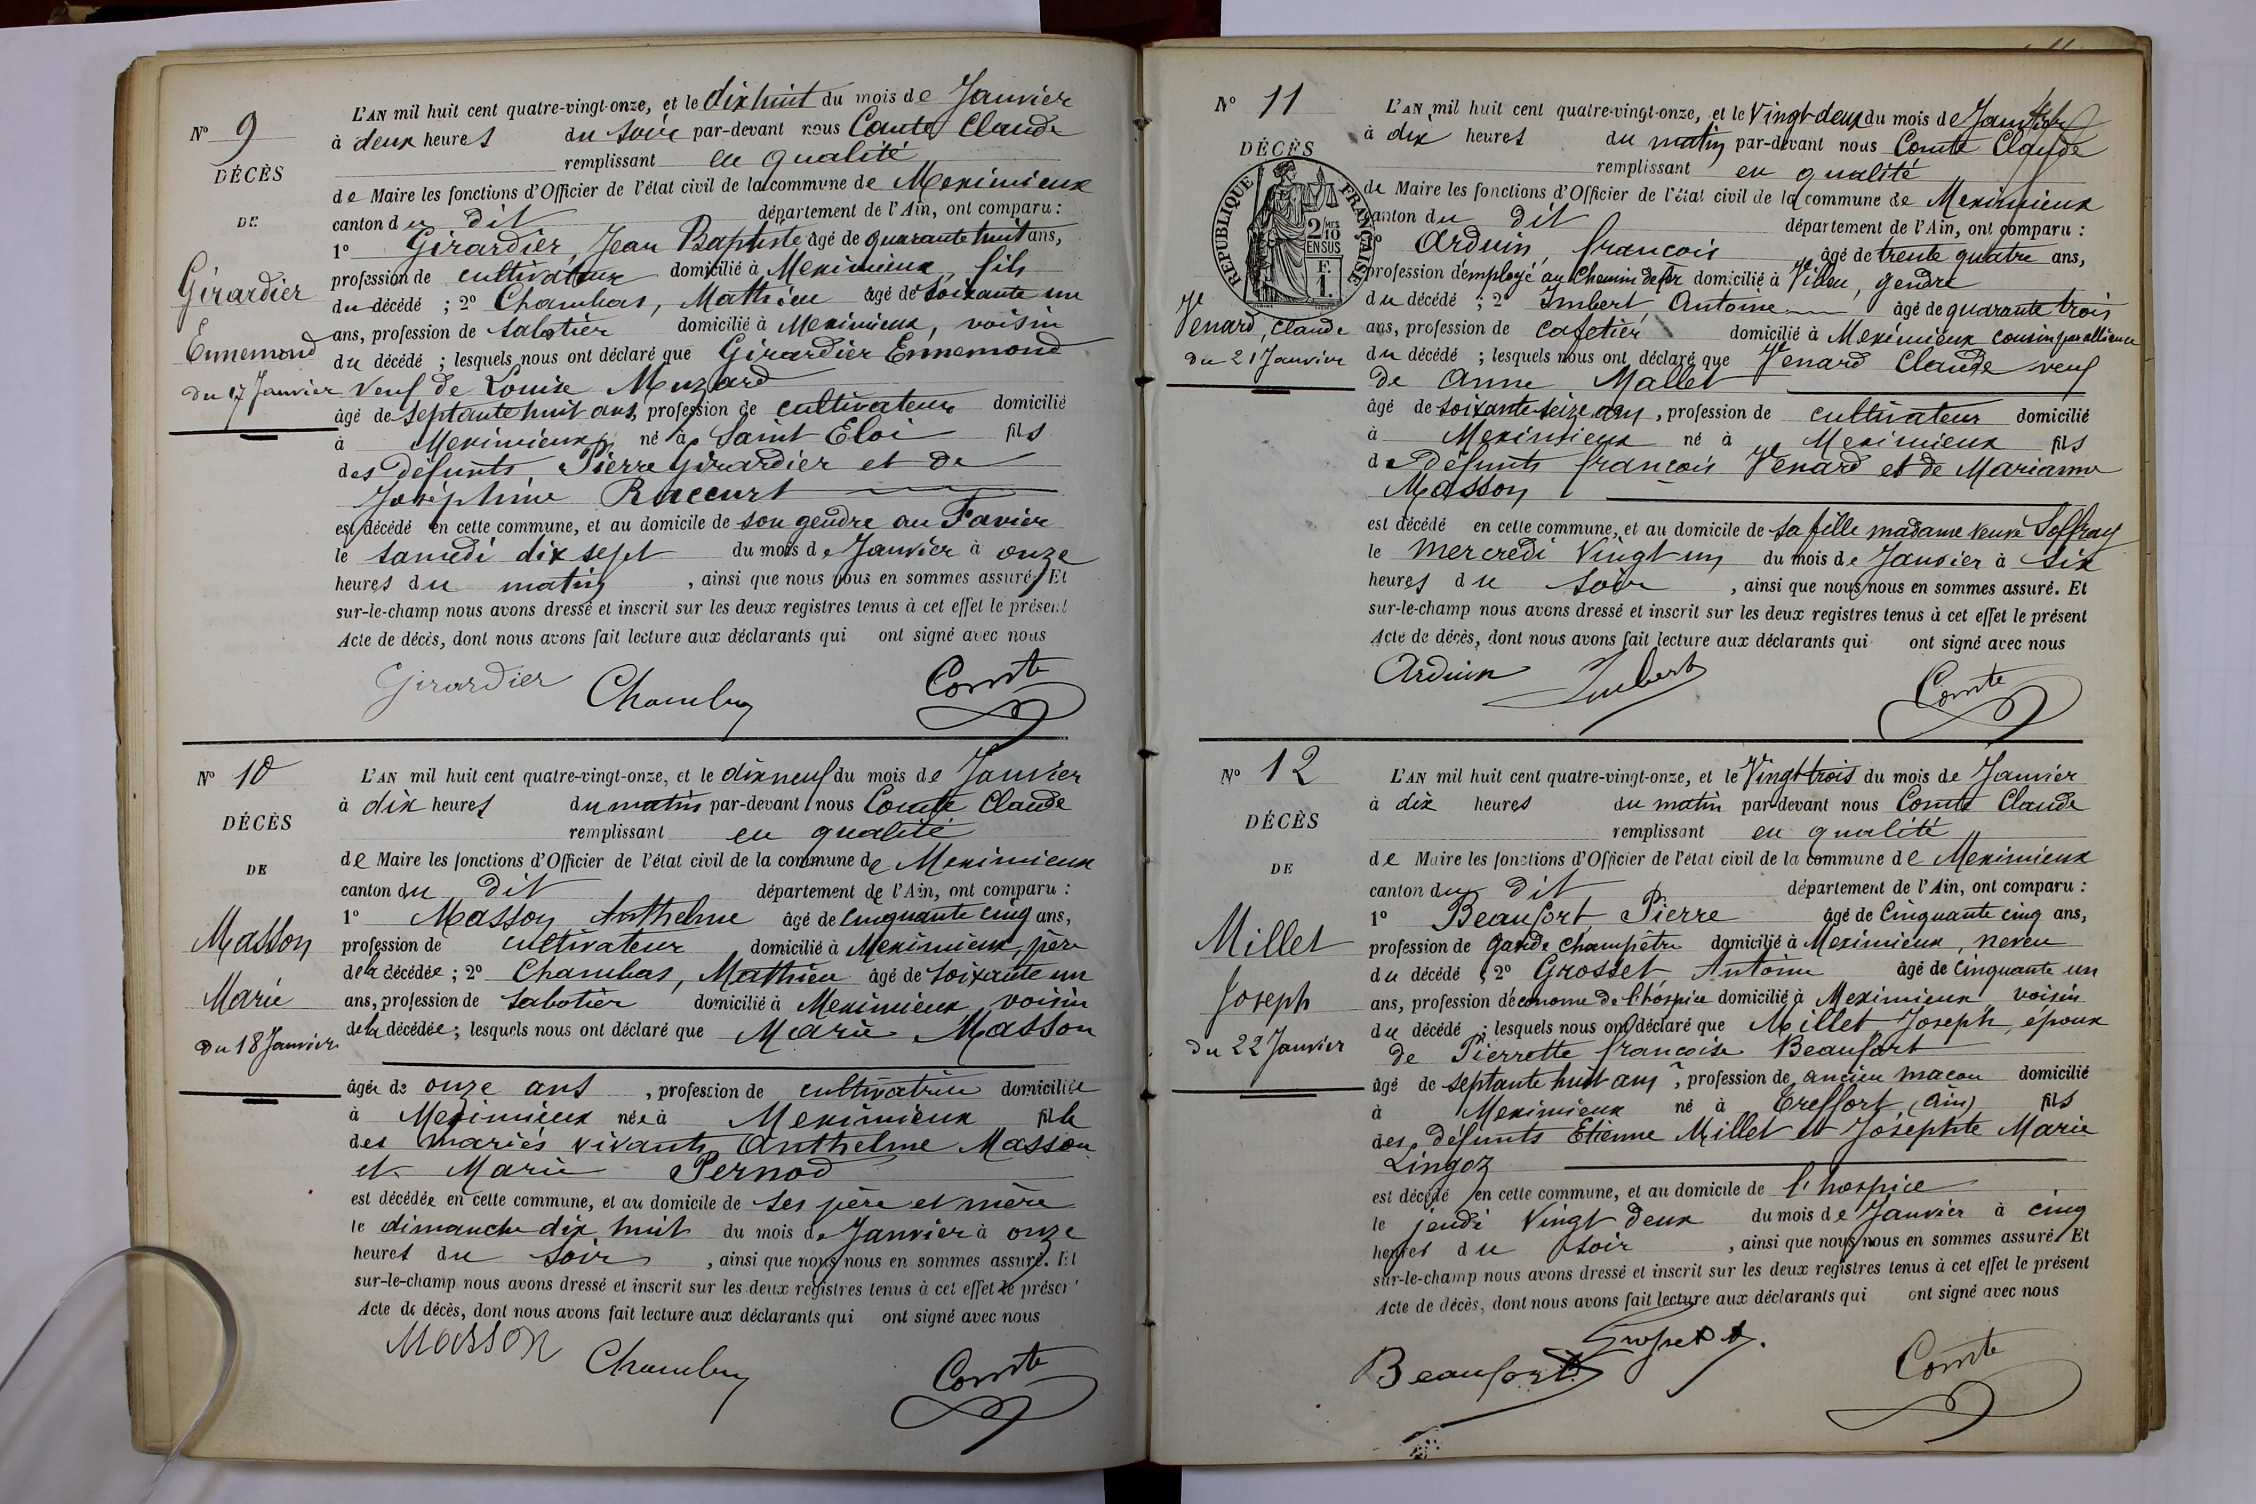 N° 9
DÉCÈS
DE
Girardier
Ennemond
du 17 Janvier
L'AN mil huit cent quatre-vingt-onze, et le dix huit du mois de Janvier
à deux heures du soir par-devant nous Comte Claude
remplissant en qualité
de Maire les fonctions d'Officier de l'état civil de la commune de Meximieux
canton du dit département de l'Ain, ont comparu :
1° Girardier, Jean Baptiste âgé de quarante huit ans,
profession de cultivateur domicilié à Meximieux, fils
du décédé ; 2° Chambas, Mathieu âgé de soixante un
ans, profession de sabotier domicilié à Meximieux, voisin
du décédé ; lesquels nous ont déclaré que Girardier Ennemond
veuf de Louise Muzard
âgé de septante huit ans, profession de cultivateur domicilié
à Meximieux né à Saint Eloi fils
des défunts Pierre Girardier et de
Joséphine Raccurt
est décédé en cette commune, et au domicile de son gendre au Favier
le samedi dix sept du mois de Janvier à onze
heures du matin, ainsi que nous nous en sommes assuré. Et
sur-le-champ nous avons dressé et inscrit sur les deux registres tenus à cet effet le présent
Acte de décès, dont nous avons fait lecture aux déclarants qui ont signé avec nous
Girardier Chambas Comte
N° 10
DÉCÈS
DE
Masson
Marie
du 18 Janvier
L'AN mil huit cent quatre-vingt-onze, et le dix neuf du mois de Janvier
à dix heures du matin par-devant nous Comte Claude
remplissant en qualité
de Maire les fonctions d'Officier de l'état civil de la commune de Meximieux
canton du dit département de l'Ain, ont comparu :
1° Masson Anthelme âgé de cinquante cinq ans,
profession de cultivateur domicilié à Meximieux, père
de la décédée ; 2° Chambas, Mathieu âgé de soixante un
ans, profession de sabotier domicilié à Meximieux, voisin
de la décédée ; lesquels nous ont déclaré que Marie Masson
âgée de onze ans, profession de cultivatrice domiciliée
à Meximieux née à Meximieux fille
des mariés vivants Anthelme Masson
et Marie Pernod
est décédée en cette commune, et au domicile de ses père et mère
le dimanche dix huit du mois de Janvier à onze
heures du soir, ainsi que nous nous en sommes assuré. Et
sur-le-champ nous avons dressé et inscrit sur les deux registres tenus à cet effet le présen
Acte de décès, dont nous avons fait lecture aux déclarants qui ont signé avec nous
Masson Chambas Comte
N° 11
DÉCÈS
RÉPUBLIQUE FRANÇAISE
2/10 EN SUS
Venard, Claude
du 21 Janvier
L'AN mil huit cent quatre-vingt-onze, et le Vingt deux du mois de Janvier
à dix heures du matin par-devant nous Comte Claude
remplissant en qualité
de Maire les fonctions d'Officier de l'état civil de la commune de Meximieux
canton du dit département de l'Ain, ont comparu :
1° Arduin, françois âgé de trente quatre ans,
profession d'employé au Chemin de fer domicilié à Villeu, gendre
du décédé ; 2° Imbert, Antoine âgé de quarante trois
ans, profession de cafetier domicilié à Meximieux cousin par alliance
du décédé ; lesquels nous ont déclaré que Venard Claude veuf
de Anne Mallet
âgé de soixante seize ans, profession de cultivateur domicilié
à Meximieux né à Meximieux fils
de défunts françois Venard et de Marianne
Masson
est décédé en cette commune, et au domicile de sa fille madame veuve Soffray
le mercredi Vingt un du mois de Janvier à six
heures du soir, ainsi que nous nous en sommes assuré. Et
sur-le-champ nous avons dressé et inscrit sur les deux registres tenus à cet effet le présent
Acte de décès, dont nous avons fait lecture aux déclarants qui ont signé avec nous
Arduin Imbert Comte
N° 12
DÉCÈS
DE
Millet
Joseph
du 22 Janvier
L'AN mil huit cent quatre-vingt-onze, et le Vingt trois du mois de Janvier
à dix heures du matin par-devant nous Comte Claude
remplissant en qualité
de Maire les fonctions d'Officier de l'état civil de la commune de Meximieux
canton du dit département de l'Ain, ont comparu :
1° Beaufort, Pierre âgé de Cinquante cinq ans,
profession de garde champêtre domicilié à Meximieux, neveu
du décédé ; 2° Grosset Antoine âgé de Cinquante un
ans, profession d'économe de l'hospice domicilié à Meximieux voisin
du décédé ; lesquels nous ont déclaré que Millet Joseph, époux
de Pierrette françoise Beaufort
âgé de septante huit ans, profession de ancien maçon domicilié
à Meximieux né à Treffort (Ain) fils
des défunts Etienne Millet et Joséphte Marie
Lingoz
est décédé en cette commune, et au domicile de l'hospice
le jeudi Vingt deux du mois de Janvier à cinq
heures du soir, ainsi que nous nous en sommes assuré. Et
sur-le-champ nous avons dressé et inscrit sur les deux registres tenus à cet effet le présent
Acte de décès, dont nous avons fait lecture aux déclarants qui ont signé avec nous
Beaufort Grosset Comte